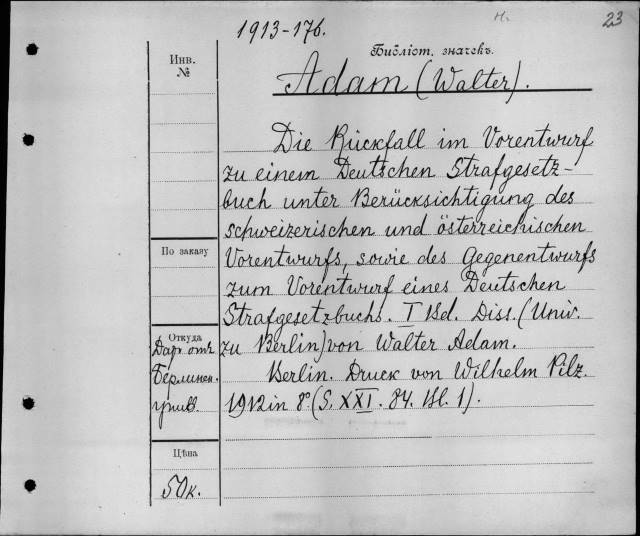 1913-176.
23
Библіот. значекъ.
Инв.
№
Adam (Walter).
Die Rückfall im Vorentwurf
zu einem Deutschen Strafgesetz-
buch unter Berücksichtigung des
schweizerischen und österreichischen
По заказу
Vorentwurfs, sowie des Gegenentwurfs
zum Vorentwurf eines Deutschen
Strafgesetzbuchs. I Bd. Diss. (Univ.
Откуда
Даръ отъ
zu Berlin) von Walter Adam.
Берлинск.
Berlin. Druck von Wilhelm Pilz.
унив.
1912 in 8º. (S. XXI. 84. Bl. 1).
Цѣна
50к.